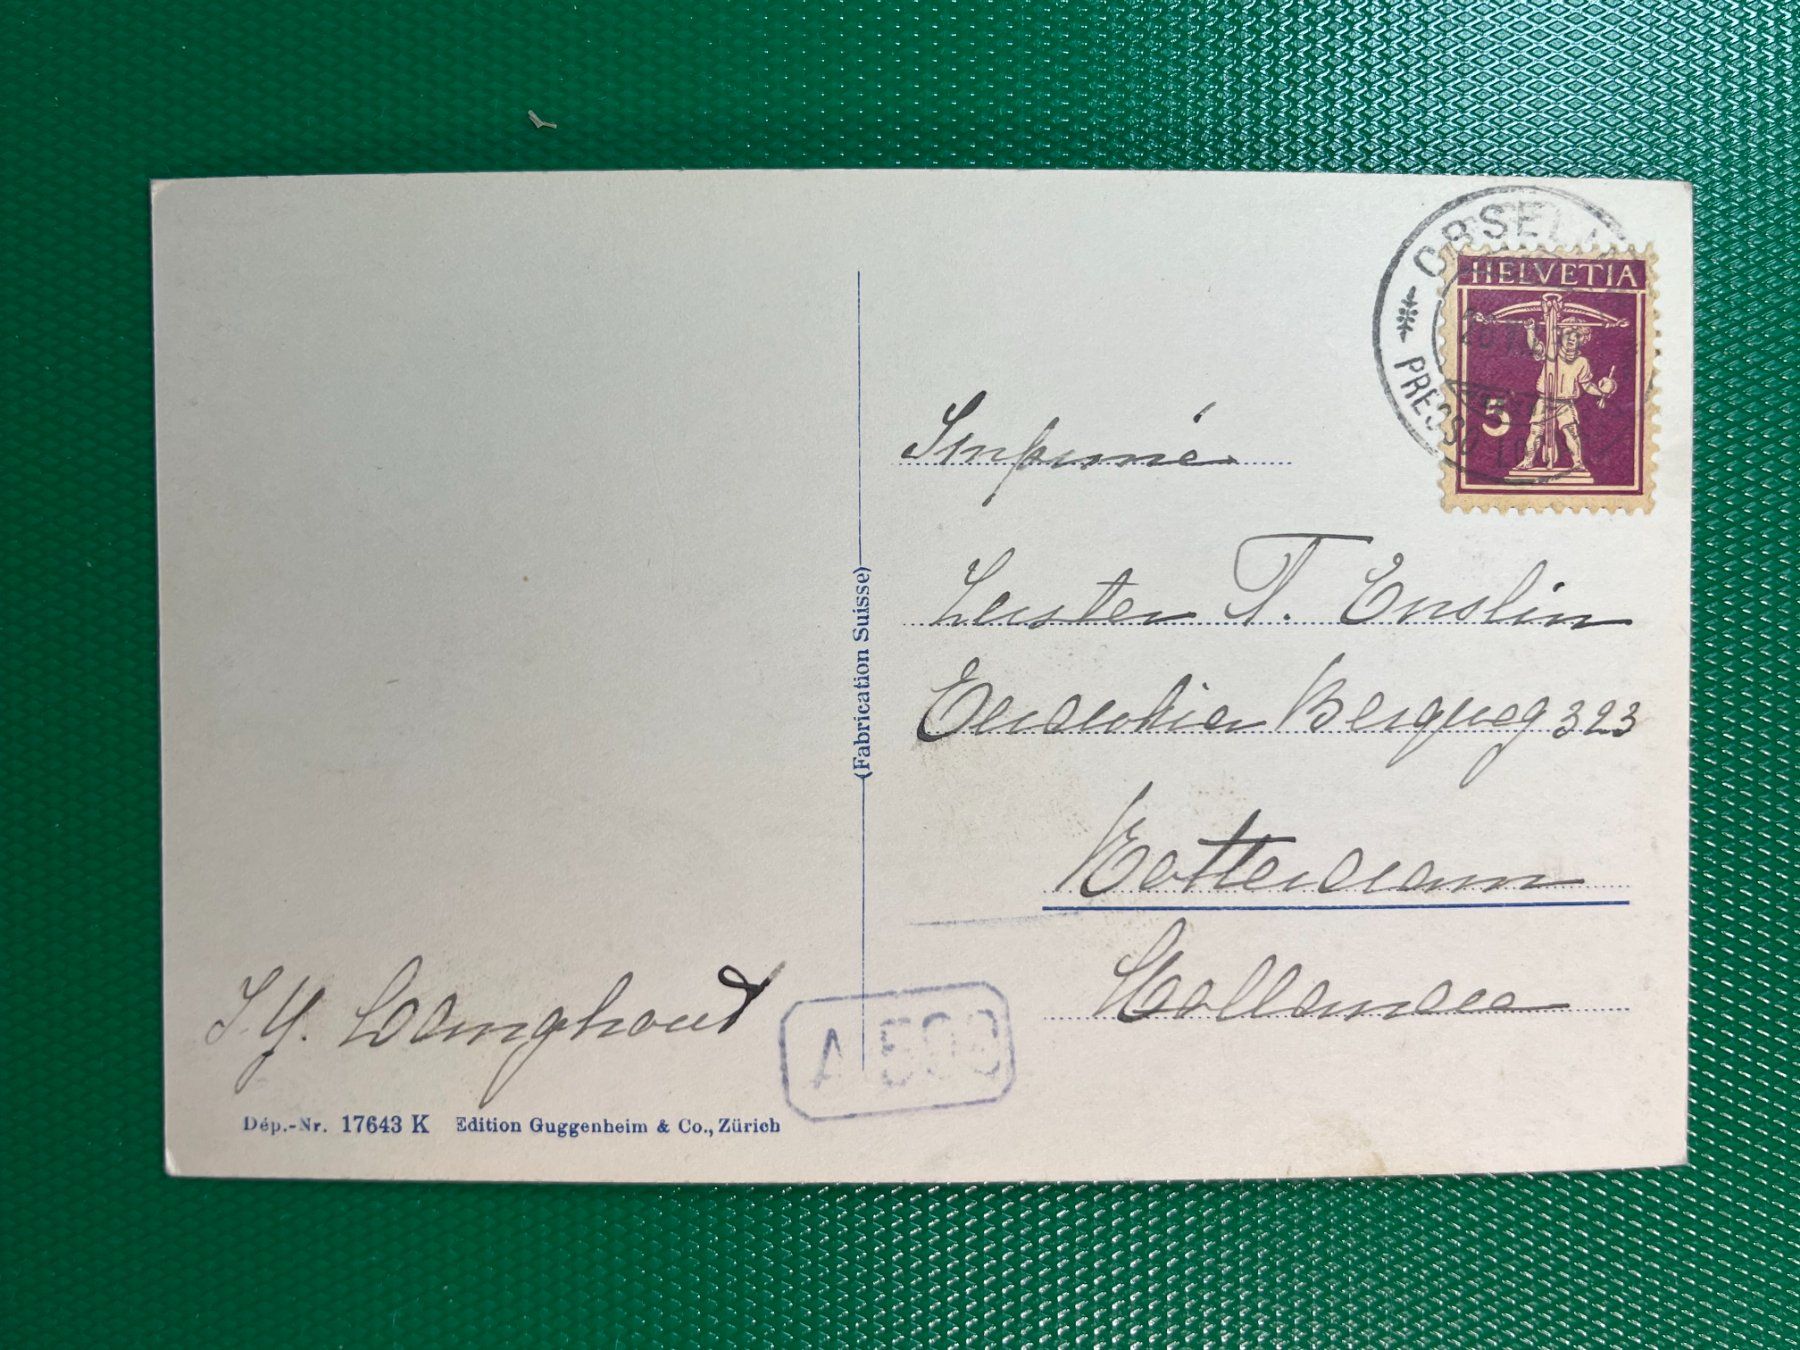 ORSELI
PRESSO
HELVETIA
5
Imprimé
Zuster T. Enslin
Bergweg 323
Rotterdam
Holland
(Fabrication Suisse)
A 508
Dép.-Nr. 17643 K Edition Guggenheim & Co., Zürich